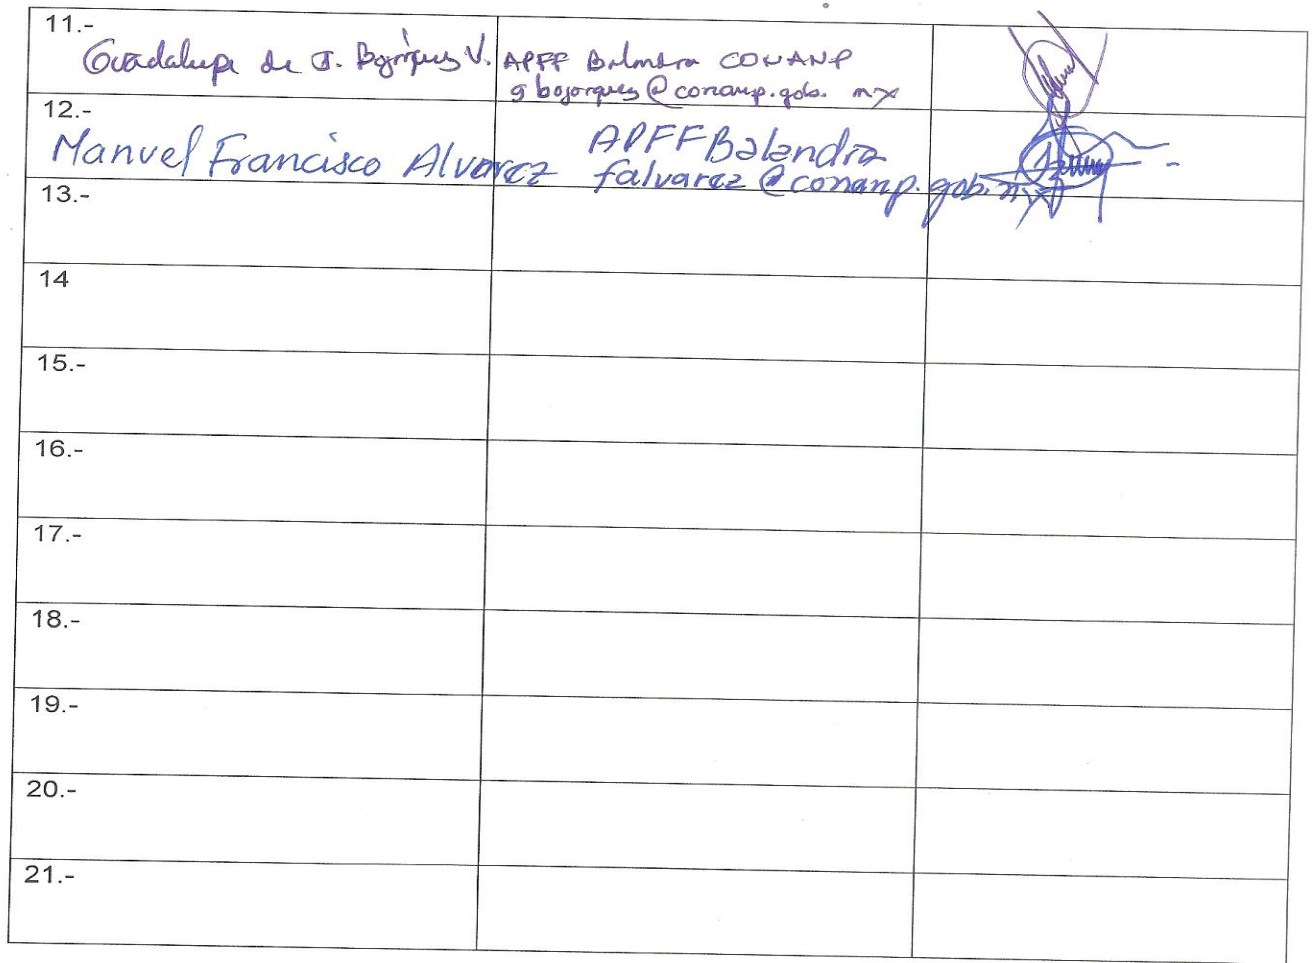 11.-
Guadalupe de J. Bojórquez V. APFF Balandra CONANP
gbojorquez@conanp.gob.mx
12.-
Manuel Francisco Alvarez APFF Balandra
falvarez@conanp.gob.mx
13.-
14
15.-
16.-
17.-
18.-
19.-
20.-
21.-